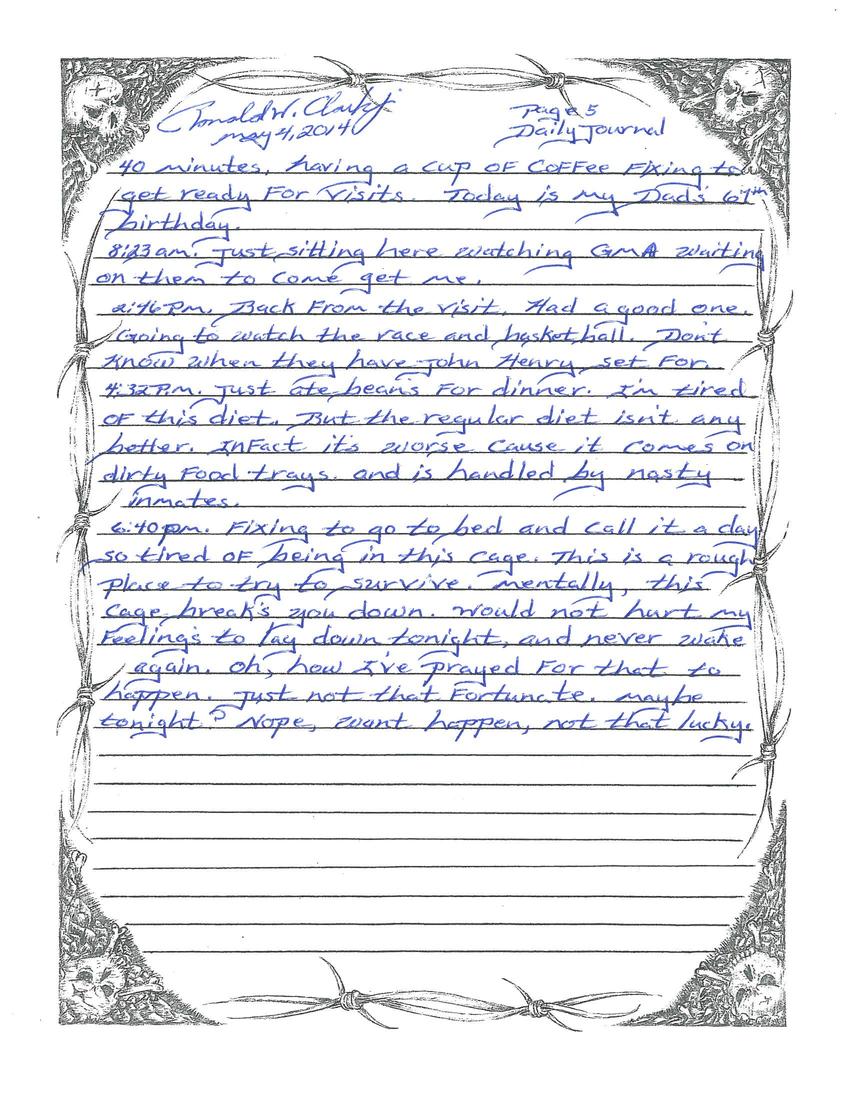 Ronald W. Clark Jr
May 4, 2014
Page 5
Daily Journal
40 minutes, having a cup of coffee fixing to
get ready for visits. Today is my Dad's 67th
birthday.
8:23 am. Just sitting here watching GMA waiting
on them to come get me.
2:46 pm. Back from the visit. Had a good one.
Going to watch the race and basketball. Don't
know when they have John Henry set for.
4:32 P.m. Just ate bean's for dinner. I'm tired
of this diet. But the regular diet isn't any
better. Infact it's worse cause it comes on
dirty food trays. and is handled by nasty
inmates.
6:40 pm. Fixing to go to bed and call it a day
so tired of being in this cage. This is a rough
place to try to survive. Mentally, this
cage break's you down. Would not hurt my
feeling's to lay down tonight, and never wake
again. Oh, how I've prayed for that to
happen. Just not that fortunate. Maybe
tonight? Nope, want happen, not that lucky.